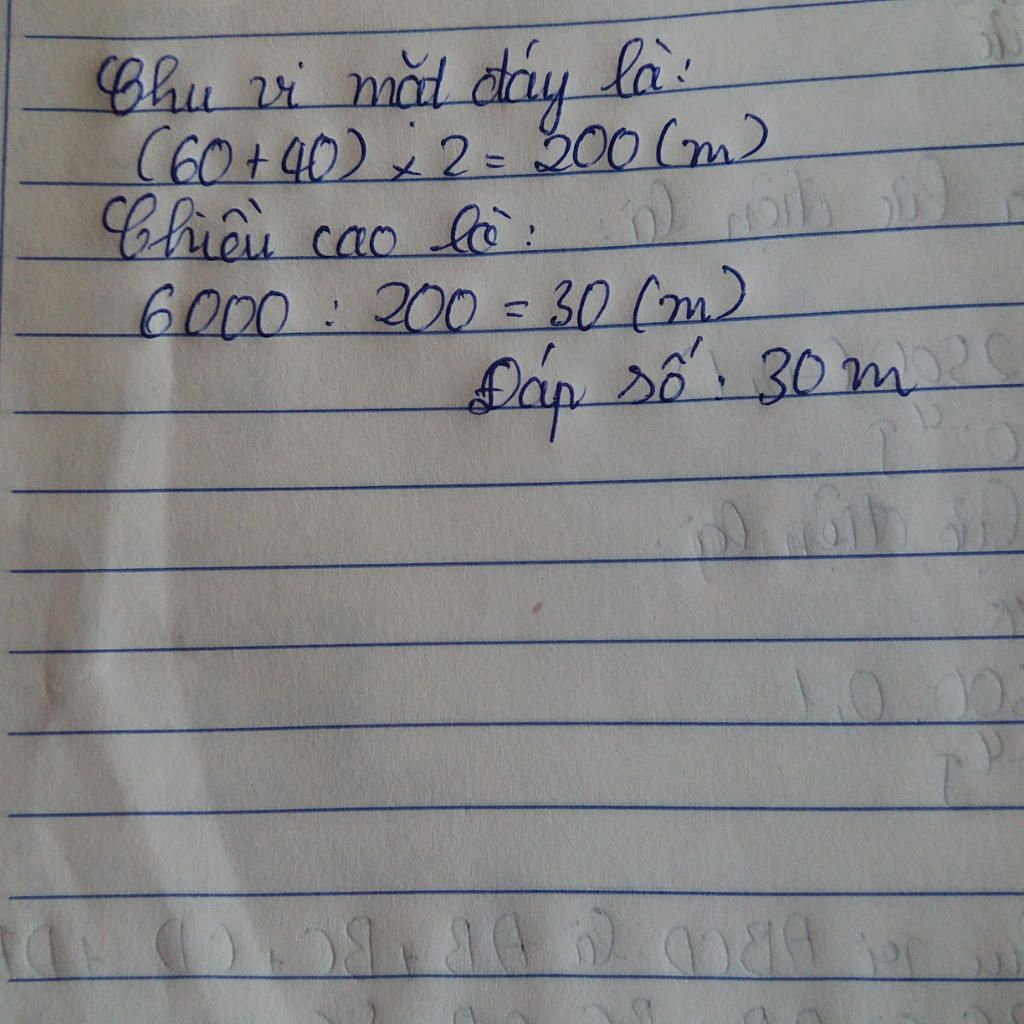 Chu vi mặt đáy là:
(60 + 40) x 2 = 200 (m)
Chiều cao là:
6000 : 200 = 30 (m)
Đáp số: 30 m